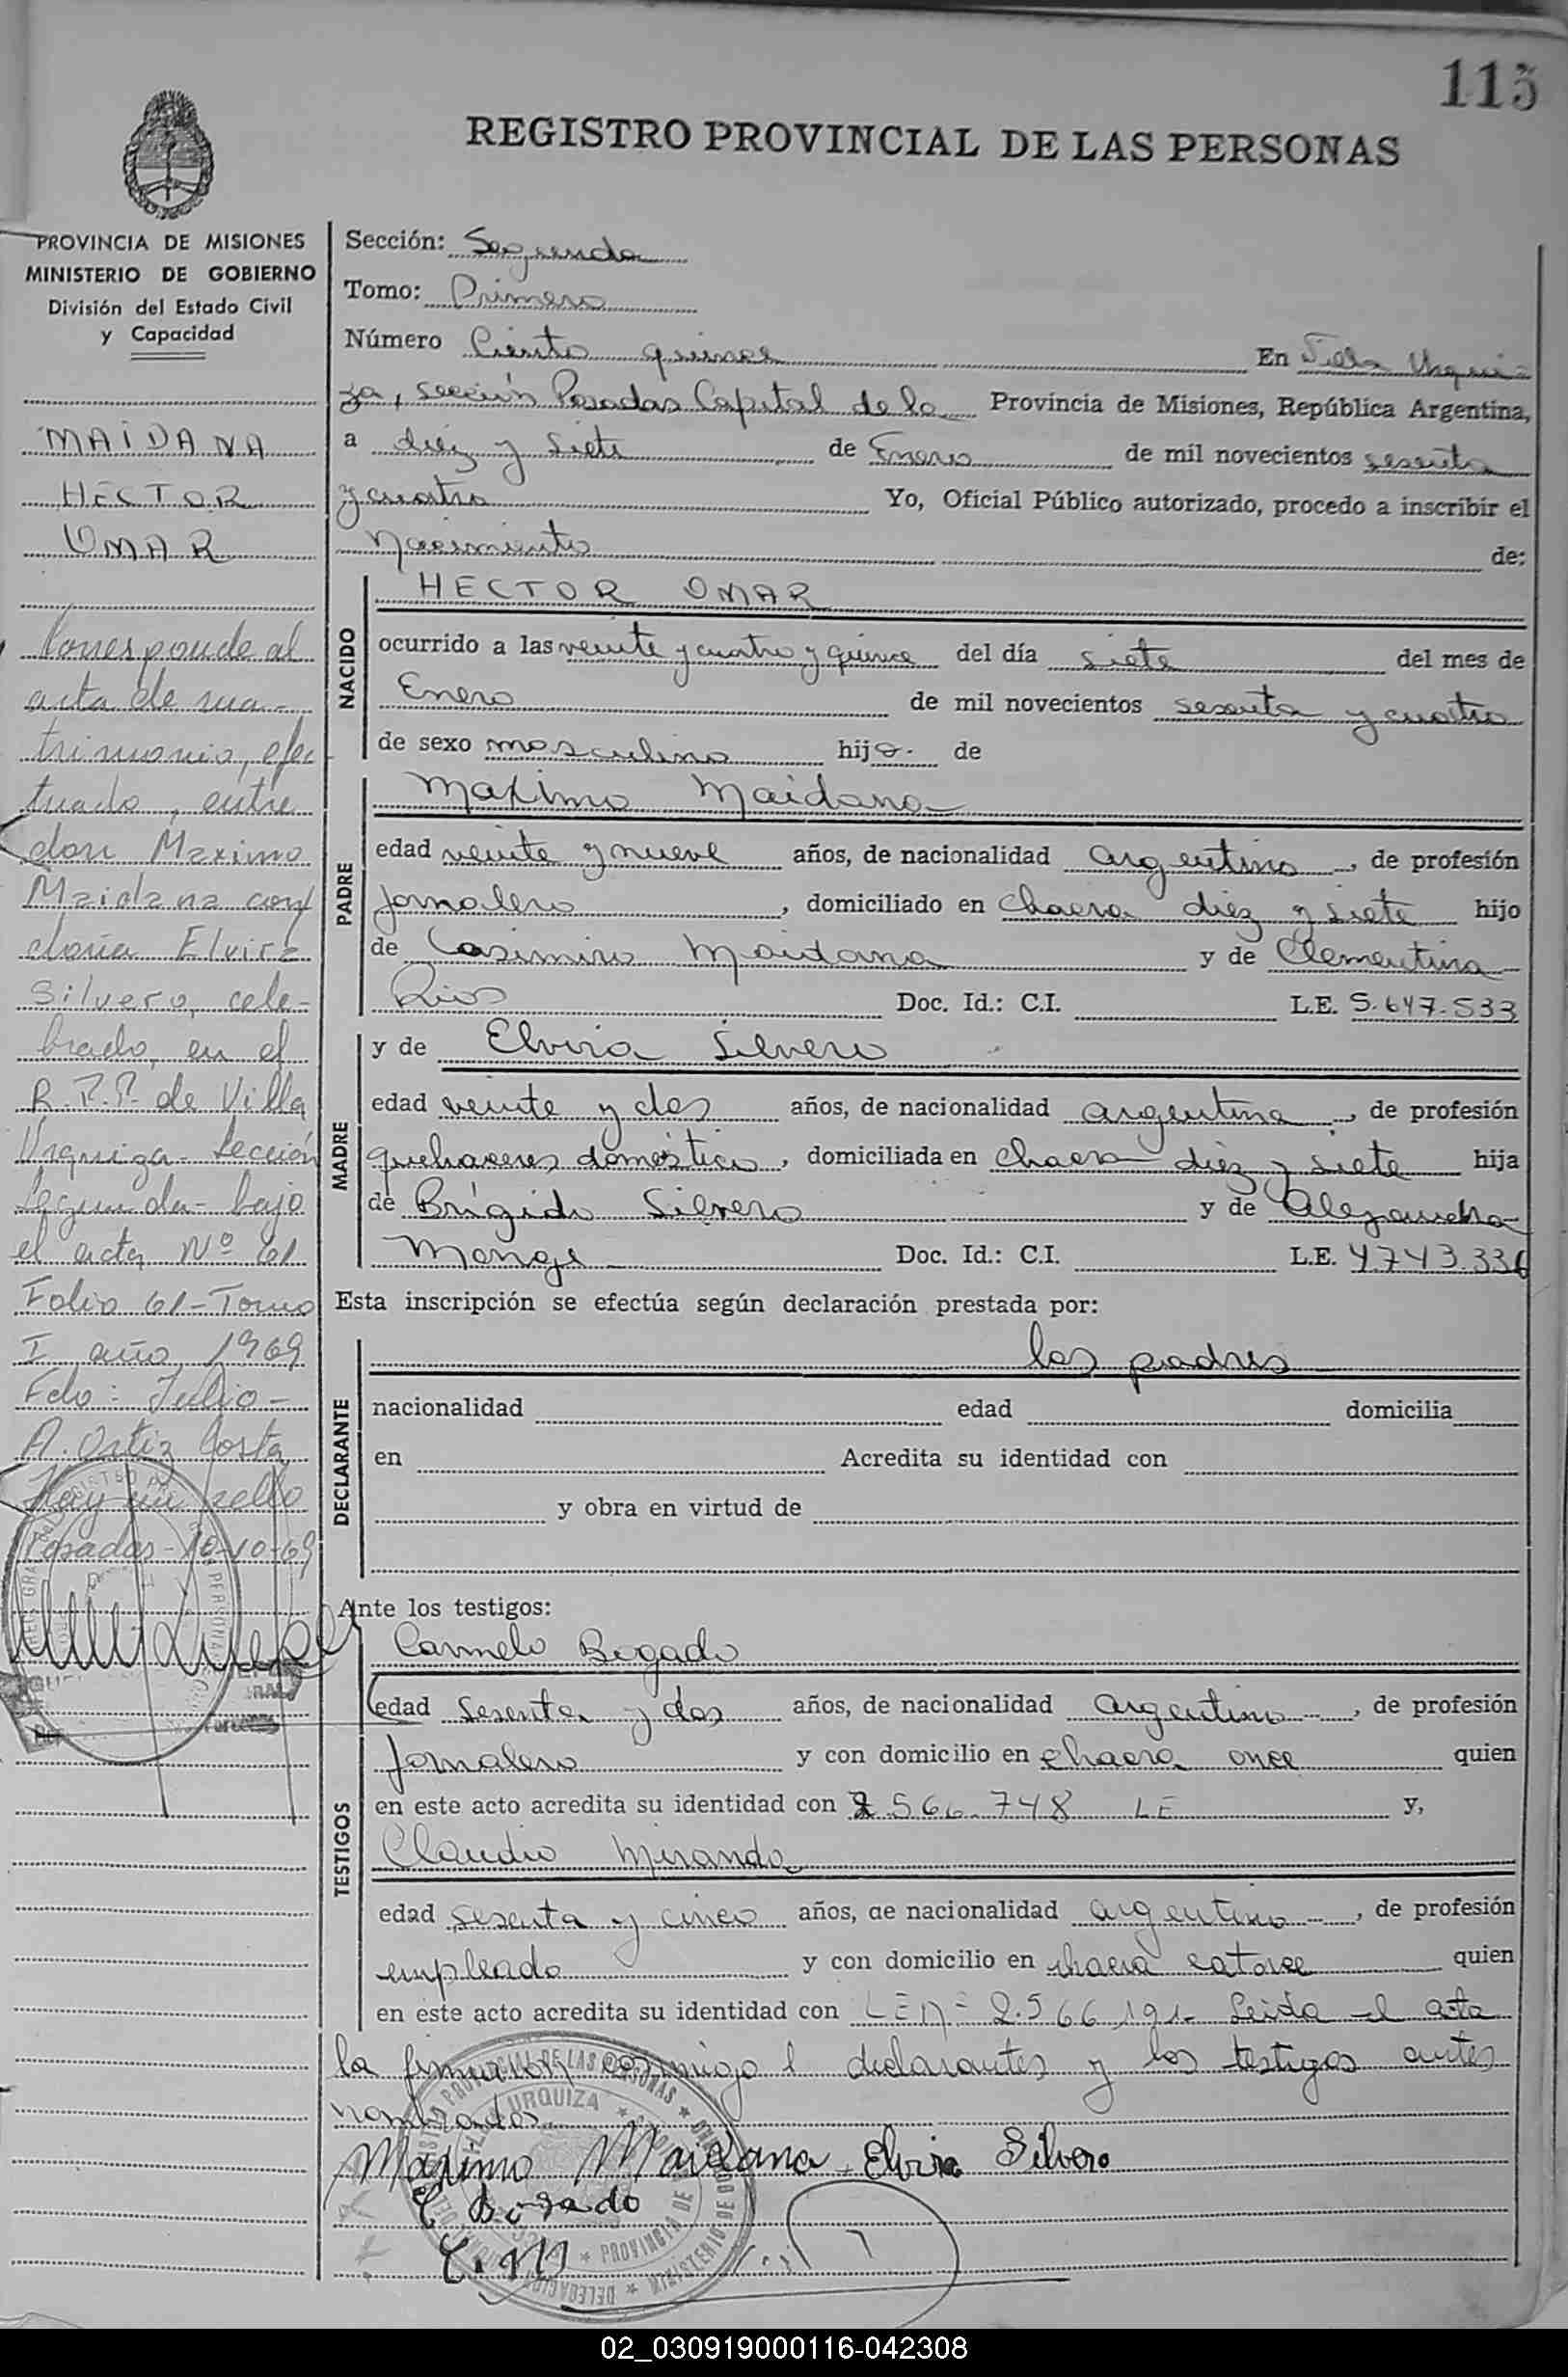 115
REGISTRO PROVINCIAL DE LAS PERSONAS
PROVINCIA DE MISIONES
MINISTERIO DE GOBIERNO
División del Estado Civil
y Capacidad
MAIDANA
HECTOR
OMAR
Corresponde al
acta de ma-
trimonio, efec
tuado, entre
don Maximo
Maidana con
doña Elvira
Silvero, cele-
brado, en el
R.P.P. de Villa
Urquiza - Sección
Segunda - bajo
el acta Nº 61
Folio 61 - Tomo
I año 1969
Fdo: Julio -
A. Ortiz Costa
Hay un sello
Posadas - 10-10-69
Sección: Segunda
Tomo: Primero
Número Ciento quince En Villa Urqui-
za, sección Posadas Capital de la Provincia de Misiones, República Argentina,
a diez y siete de Enero de mil novecientos sesenta
y cuatro Yo, Oficial Público autorizado, procedo a inscribir el
Nacimiento de:
NACIDO
HECTOR OMAR
ocurrido a las veinte y cuatro y quince del día siete del mes de
Enero de mil novecientos sesenta y cuatro
de sexo masculino hijo de
PADRE
Maximo Maidana
edad veinte y nueve años, de nacionalidad argentino, de profesión
jornalero, domiciliado en chacra diez y siete hijo
de Casimiro Maidana y de Clementina
Rios Doc. Id.: C.I. L.E. 5.647.533
MADRE
y de Elvira Silvero
edad veinte y dos años, de nacionalidad argentina, de profesión
quehaceres domestico, domiciliada en chacra diez y siete hija
de Brígido Silvero y de Alejandra
Monge Doc. Id.: C.I. L.E. 4.743.336
Esta inscripción se efectúa según declaración prestada por:
DECLARANTE
los padres
nacionalidad edad domicilia
en Acredita su identidad con
y obra en virtud de
Ante los testigos:
TESTIGOS
Carmelo Bogado
edad sesenta y dos años, de nacionalidad argentino, de profesión
jornalero y con domicilio en chacra once quien
en este acto acredita su identidad con 2.566.748 LE y,
Claudio Miranda
edad sesenta y cinco años, de nacionalidad argentino, de profesión
empleado y con domicilio en chacra catorce quien
en este acto acredita su identidad con LE Nº 2.566.191- Leida el acta
la firmaron conmigo l declarantes y los testigos antes
nombrados
Maximo Maidana Elvira Silvero
C Bogado
C. M
02_030919000116-042308